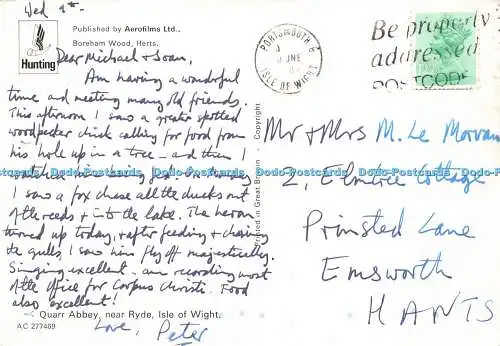 Wed 9th
Published by Aerofilms Ltd.,
Boreham Wood, Herts.
Hunting
Dear Michael & Joan,
Am having a wonderful
time and meeting many old friends.
This afternoon I saw a greater spotted
woodpecker chick calling for food from
his hole up in a tree — and then I
watched him being fed. This morning
I saw a fox chase all the ducks out
of the reeds & into the lake. The heron
turned up today, & after feeding & chasing
the gulls, I saw him fly off majestically.
Singing excellent — am recording most
of the office for Corpus Christi. Food
also excellent!
Quarr Abbey, near Ryde, Isle of Wight.
AC 277469
Love, Peter
Printed in Great Britain
Copyright
PORTSMOUTH &
JNE
ISLE OF WIGHT
Be properly
addressed
POSTCODE
Mr & Mrs M. Le Morvan
2, Elmtree Cottage
Prinsted Lane
Emsworth
HANTS
Dodo-Postcards Dodo-Postcards Dodo-Postcards Dodo-Postcards